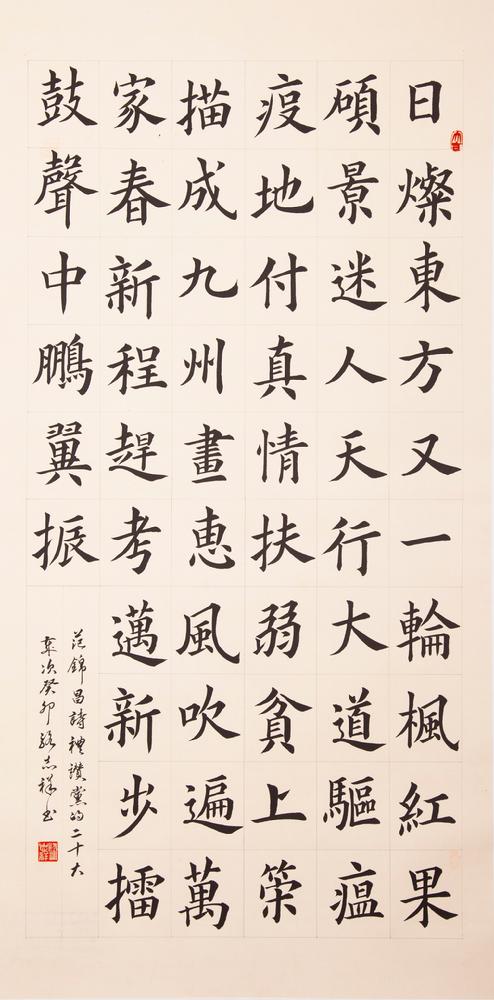 日燦東方又一輪楓紅果
碩景迷人天行大道驅瘟
疫地付真情扶弱貧上策
描成九州畫恵風吹遍萬
家春新程趕考邁新步擂
鼓聲中鵬翼振
范錦昌詩禮讚黨的二十大
歲次癸卯志祥书